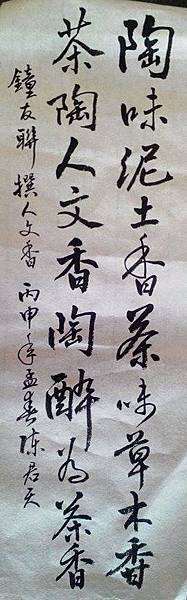 陶味泥土香茶味草木香
茶陶人文香陶醉為茶香
鐘友聯撰人文香 丙申年孟春陳君天